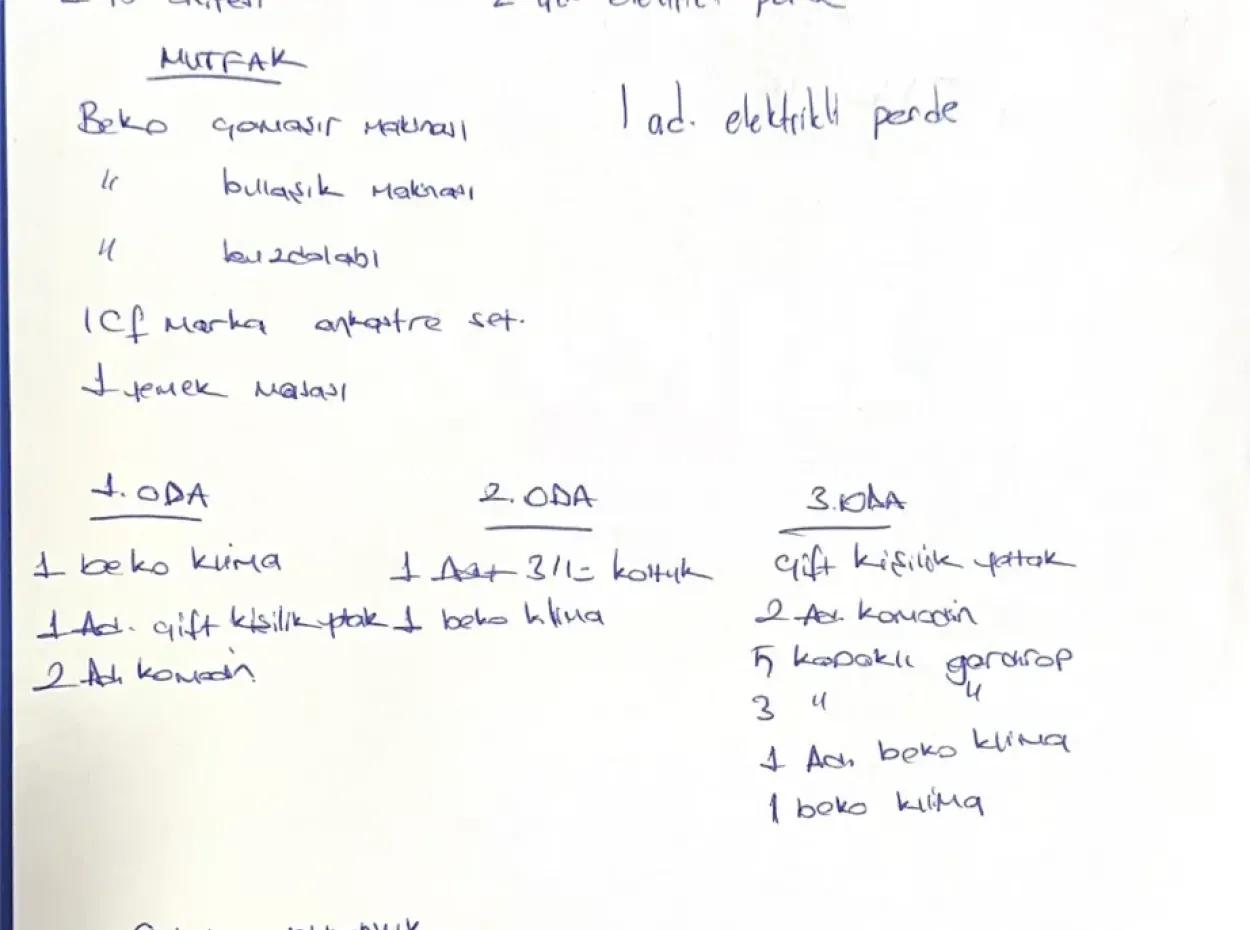 MUTFAK
Beko çamaşır makinası
1 ad. elektrikli perde
" bulaşık makinası
" buzdolabı
ICF marka ankastre set.
1 yemek masası
1. ODA
1 beko klima
1 Ad. çift kişilik ytak
2 Ad. komodin
2. ODA
1 Adt 3/1= koltuk
1 beko klima
3. ODA
çift kişilik yattak
2 Ad. komodin
5 kapaklı gardırop
3 " "
1 Ad. beko klima
1 beko klima